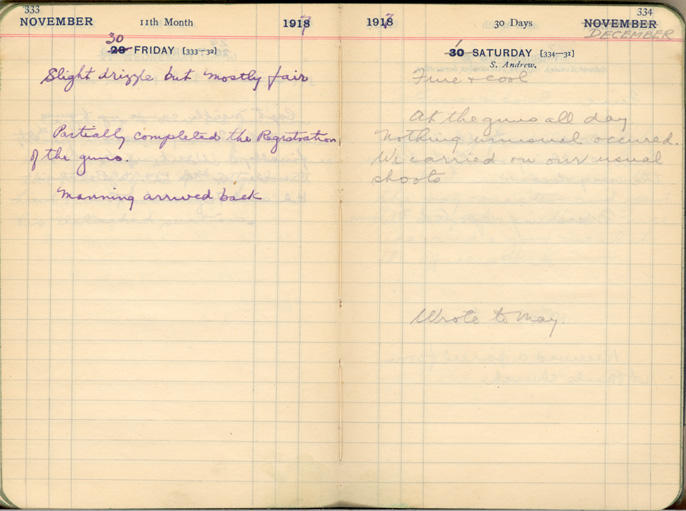 333
NOVEMBER 11th Month 1917
30
29 FRIDAY [333—32]
Slight drizzle but mostly fair
Partially completed the Registration
of the guns.
Manning arrived back
334
1917 30 Days NOVEMBER
DECEMBER
1
30 SATURDAY [334—31]
S. Andrew.
Fine & cool
At the guns all day
Nothing unusual occured.
We carried on our usual
shoots
Wrote to May.